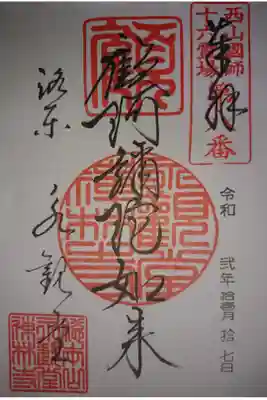 西山國師
十六霊場
番
奉拝
令和 弐年 拾壹月 拾七日
顧阿彌陀如来
洛東 永觀堂